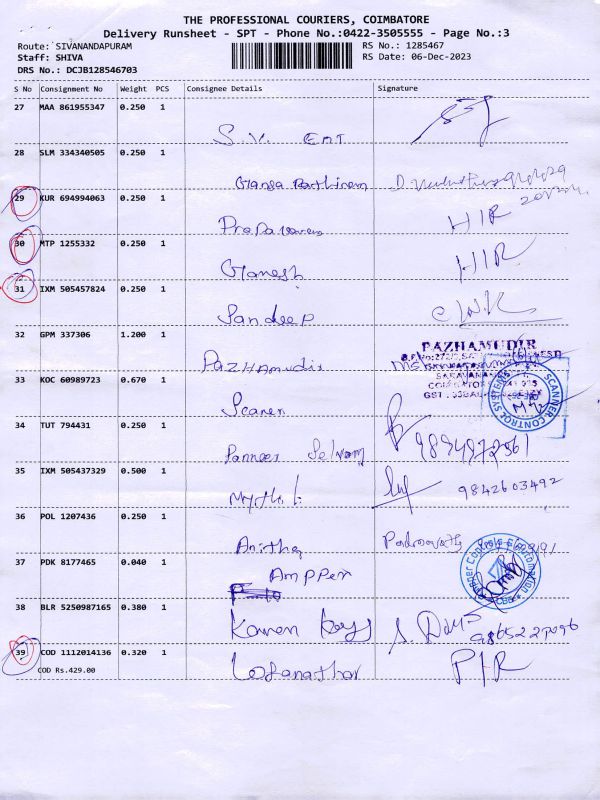 THE PROFESSIONAL COURIERS, COIMBATORE
Delivery Runsheet - SPT - Phone No.:0422-3505555 - Page No.:3
Route: SIVANANDAPURAM RS No.: 1285467
Staff: SHIVA RS Date: 06-Dec-2023
DRS No.: DCJB128546703
S No Consignment No Weight PCS Consignee Details Signature
27 MAA 861955347 0.250 1
S.V. ENT
28 SLM 334340505 0.250 1
29 KUR 694994063 0.250 1
HIR
30 MTP 1255332 0.250 1
Ganesh HIR
31 IXM 505457824 0.250 1
Sandeep
32 GPM 337306 1.200 1
PAZHAMUDIR
Pazhamudir
33 KOC 60989723 0.670 1
SCANNER CONTROL SYSTEMS
34 TUT 794431 0.250 1
Selvam 9894972561
35 IXM 505437329 0.500 1
9842603492
36 POL 1207436 0.250 1
Anitha
37 PDK 8177465 0.040 1
38 BLR 5250987165 0.380 1
39 COD 1112014136 0.320 1
COD Rs.429.00
Loganathan P/R